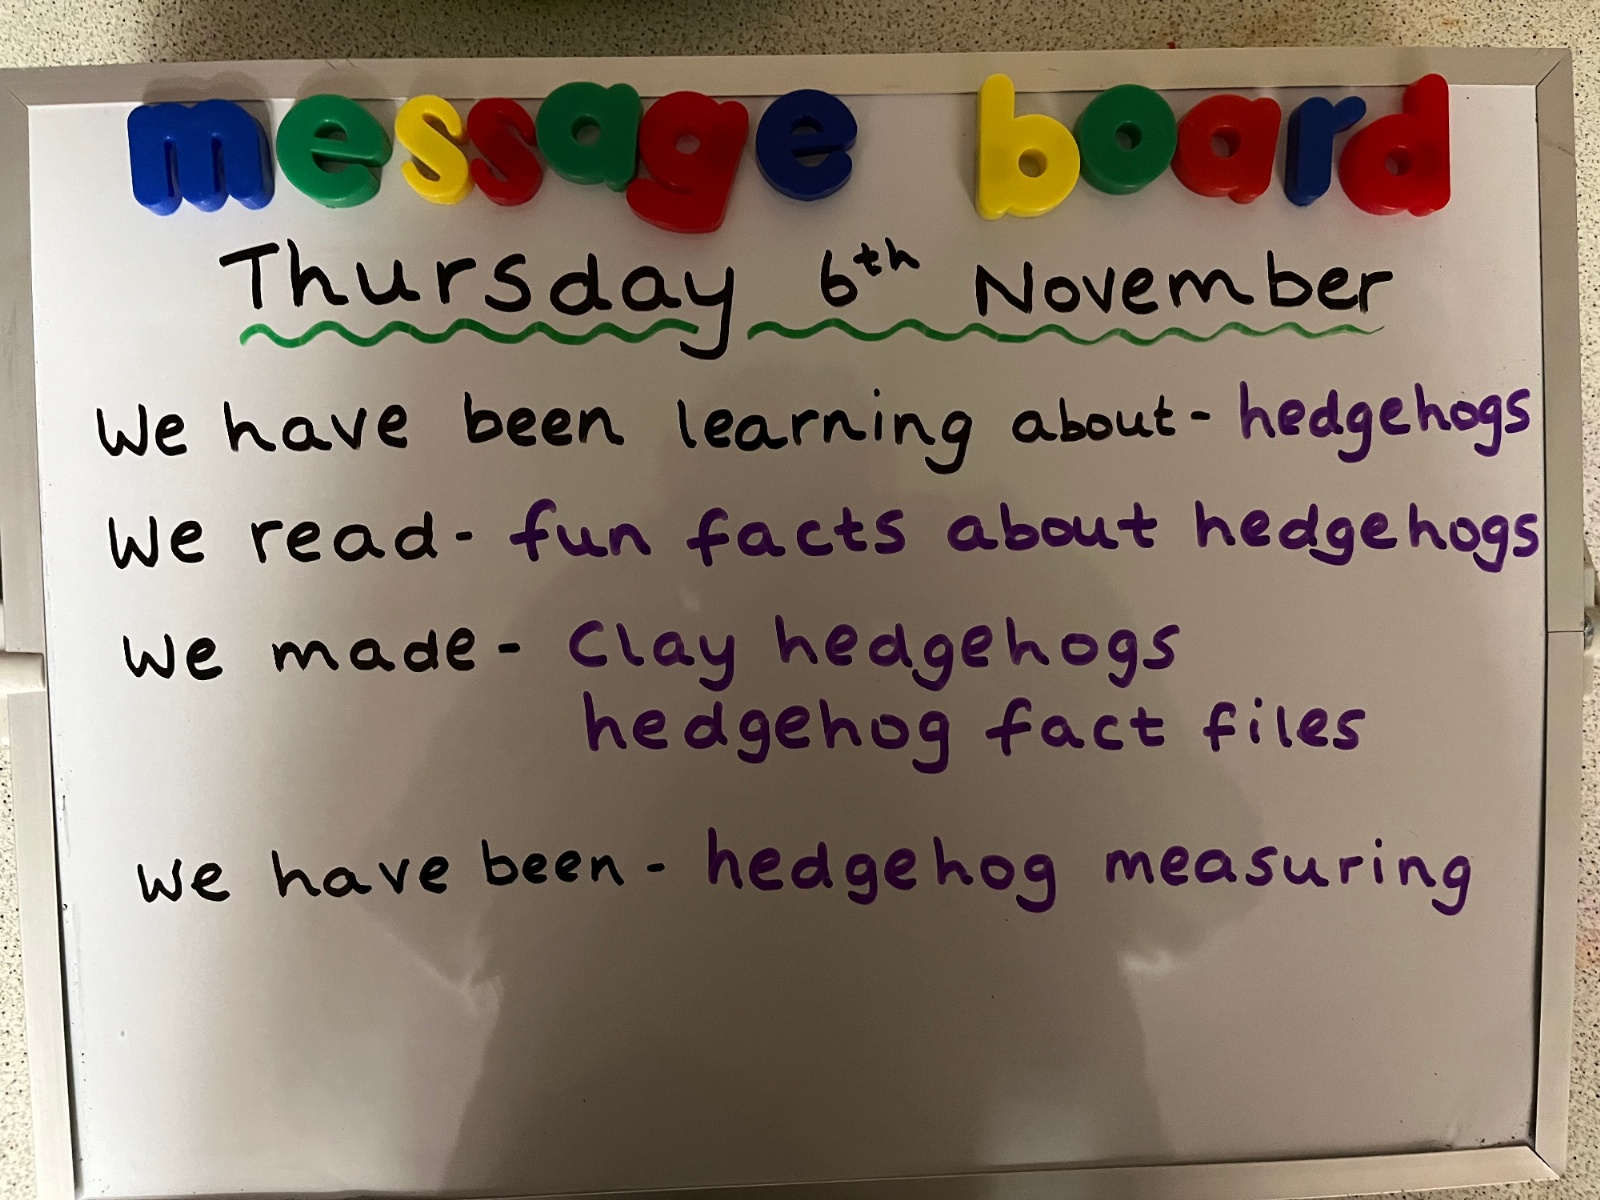 message board
Thursday 6th November
We have been learning about- hedgehogs
We read- fun facts about hedgehogs
We made- Clay hedgehogs
hedgehog fact files
We have been- hedgehog measuring